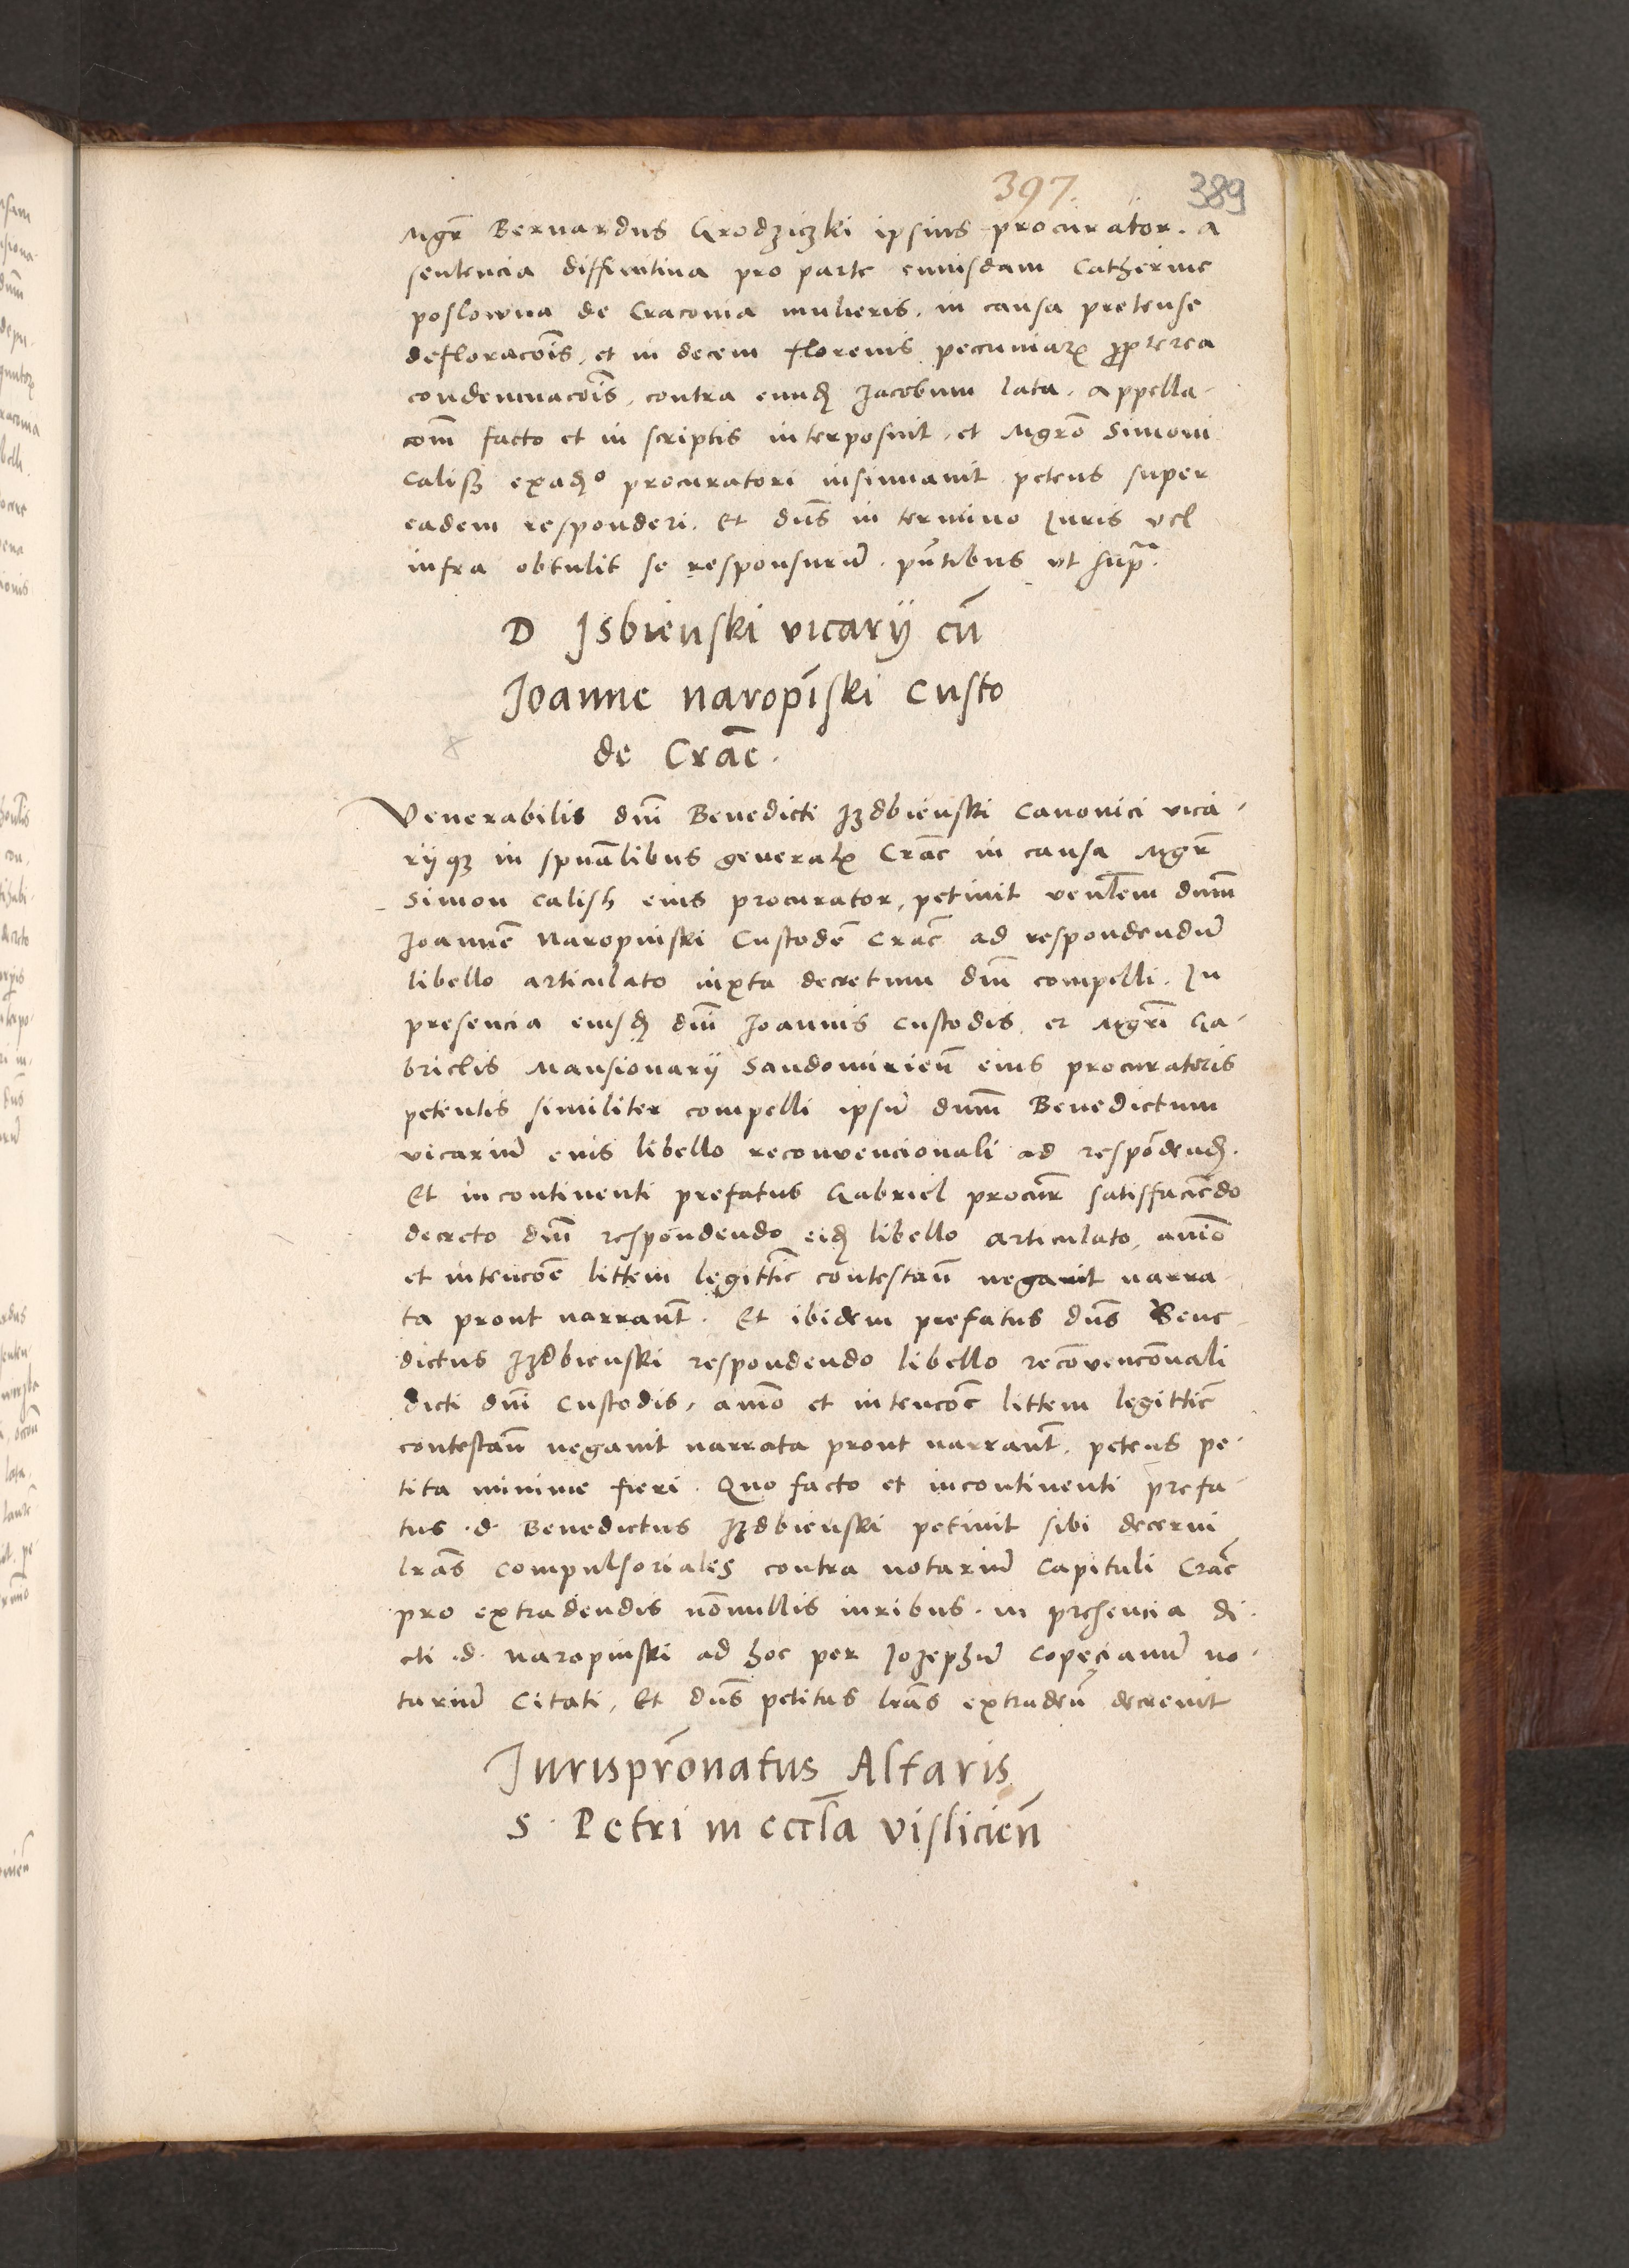 397. 389
Mgr̃ Bernardus Grodziczki ipsius procurator. a
sentencia diffinitiua pro parte cuiusdam Catherine
poslowna de Cracouia mulieris. in causa pretense
defloracõis, et in decem florenis pecuniarꝝ ꝓpterea
condemnacõis, contra eundꝫ Jacobum lata. appella-
com̃ facto et in scriptis interposuit, et Mgrõ Simoni
Calisz exaduo procuratori insinuauit petens super
eadem responderi. Et dñs in termino Juris vel
infra obtulit se responsurũ. pñtibus vt supᷓ.
D Jsbienski vicarij cũ
Joanne naropĩski Custo
de Crãc.
Venerabilis dñi Benedicti Jzdbieński Canonici vica-
rijqꝫ in spũalibus generalꝭ Crãc in causa Mgr̃
Simon Calish eius procurator, petiuit venlẽm dnũm
Joannẽ Naropinski Custodẽ Crãc ad respondendũ
libello articulato iuxta decretum dñi compelli. In
presencia eiusdꝫ dñi Joannis Custodis. et Mgrĩ Ga-
brielis Mansionarij Sandomirieñ eius procuratoris
petentis similiter compelli ipsũ dnũm Benedictum
vicariũ eius libello reconuencionali ad respõdendꝫ.
Et incontinenti prefatus Gabriel procur̃ satisfaciẽdo
decreto dñi respondendo eidꝫ libello articulato, animo
et intencõe littem legittie contestañ negauit narra-
ta prout narrant̃. Et ibidem prefatus dñs Bene-
dictus Jzdbienski respondendo libello recõuencõnali
dicti dñi Custodis, aĩmo et intencõe littem legittie
contestañ negauit narrata prout narrant̃. petens pe-
tita minime fieri. Quo facto et incontinenti prefa-
tus .d. Benedictus Jzdbienski petiuit sibi decerni
lrãs compulsoriales contra notariũ Capituli Crac̃
pro extradendis nõnullis iuribus. in presencia di-
cti .d. Naropinski ad hoc per Jozephũ Copecianũ no-
tariũ Citati, Et dñs petitas lrãs extradeñ decreuit
Jurisprõnatus Altaris
S. Petri in eccl̃a vislicieñ